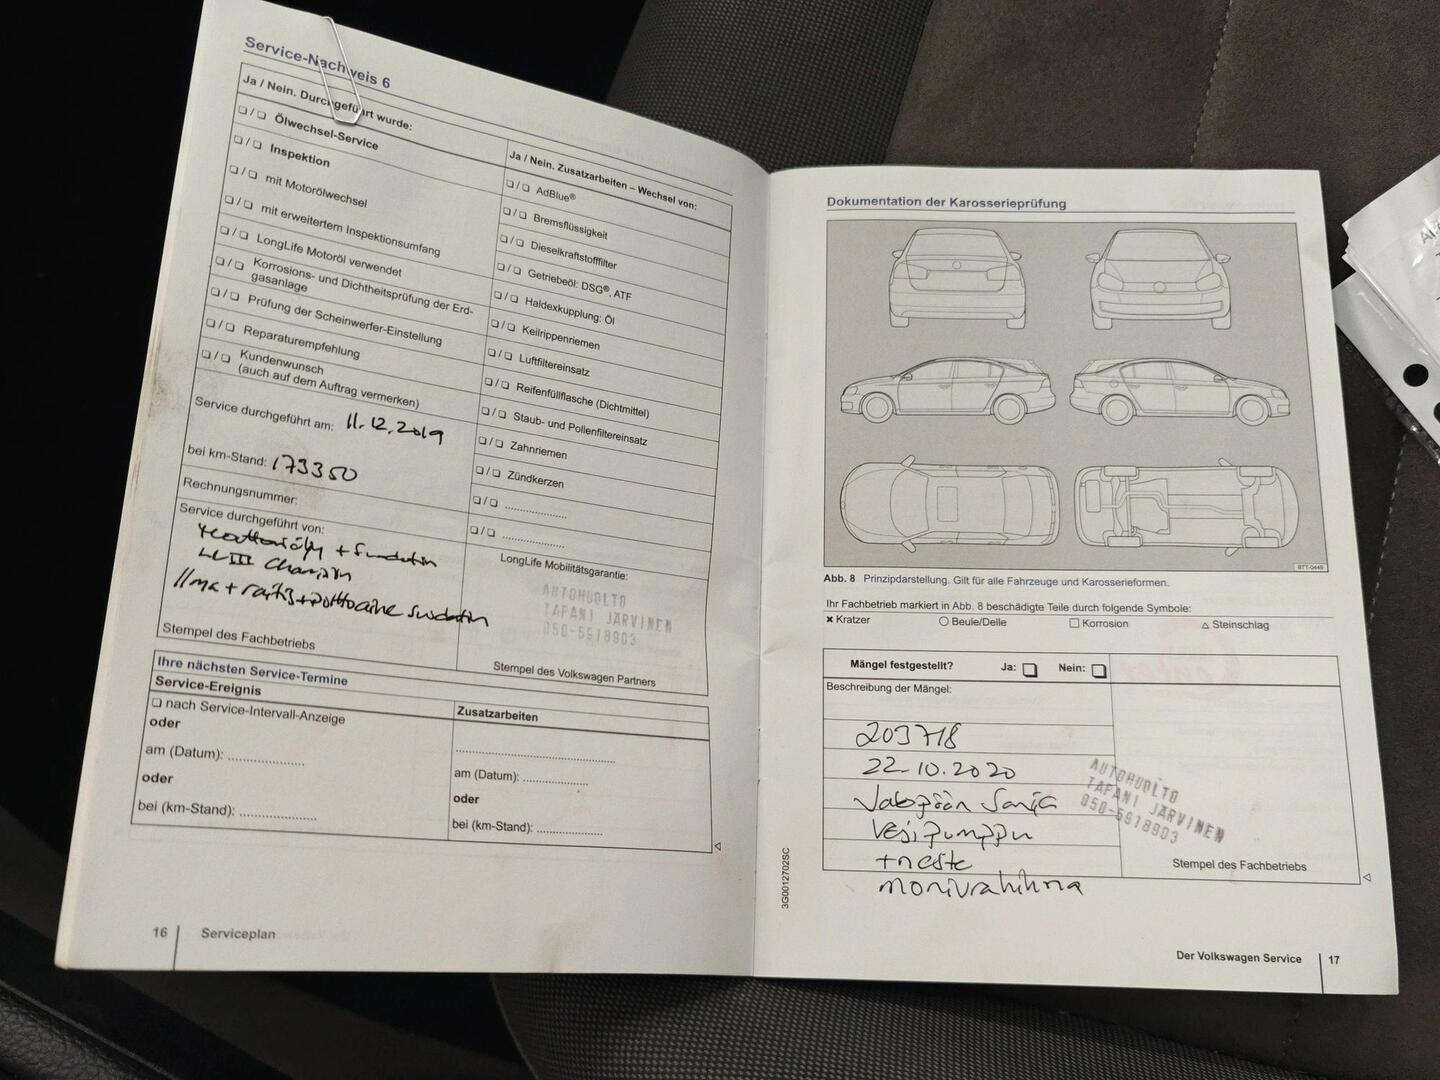 Service-Nachweis 6
Ja / Nein. Durchgeführt wurde:
❑ / ❑ Ölwechsel-Service
❑ / ❑ Inspektion
❑ / ❑ mit Motorölwechsel
❑ / ❑ mit erweitertem Inspektionsumfang
❑ / ❑ LongLife Motoröl verwendet
❑ / ❑ Korrosions- und Dichtheitsprüfung der Erd-
gasanlage
❑ / ❑ Prüfung der Scheinwerfer-Einstellung
❑ / ❑ Reparaturempfehlung
❑ / ❑ Kundenwunsch
(auch auf dem Auftrag vermerken)
Service durchgeführt am: 11.12.2019
bei km-Stand: 173350
Rechnungsnummer:
Service durchgeführt von:
+ Suodatin
Ilma + raitis + polttoaine suodatin
Stempel des Fachbetriebs
Ja / Nein. Zusatzarbeiten – Wechsel von:
❑ / ❑ AdBlue®
❑ / ❑ Bremsflüssigkeit
❑ / ❑ Dieselkraftstofffilter
❑ / ❑ Getriebeöl: DSG®, ATF
❑ / ❑ Haldexkupplung: Öl
❑ / ❑ Keilrippenriemen
❑ / ❑ Luftfiltereinsatz
❑ / ❑ Reifenfüllflasche (Dichtmittel)
❑ / ❑ Staub- und Pollenfiltereinsatz
❑ / ❑ Zahnriemen
❑ / ❑ Zündkerzen
❑ / ❑ ................
❑ / ❑ ................
LongLife Mobilitätsgarantie:
AUTOHUOLTO
TAPANI JÄRVINEN
050-5918903
Stempel des Volkswagen Partners
Ihre nächsten Service-Termine
Service-Ereignis
❑ nach Service-Intervall-Anzeige
oder
am (Datum): ....................
oder
bei (km-Stand): ....................
Zusatzarbeiten
........................................
am (Datum): .................
oder
bei (km-Stand): .................
16 Serviceplan
Dokumentation der Karosserieprüfung
BTT-0449
Abb. 8 Prinzipdarstellung. Gilt für alle Fahrzeuge und Karosserieformen.
Ihr Fachbetrieb markiert in Abb. 8 beschädigte Teile durch folgende Symbole:
× Kratzer ○ Beule/Delle □ Korrosion △ Steinschlag
Mängel festgestellt? Ja: ❑ Nein: ❑
Beschreibung der Mängel:
203718
22.10.2020
Jakopään Sarja
Vesipumppu
+ neste
monivahihna
AUTOHUOLTO
TAPANI JÄRVINEN
050-5918903
Stempel des Fachbetriebs
3G0012702SC
Der Volkswagen Service 17